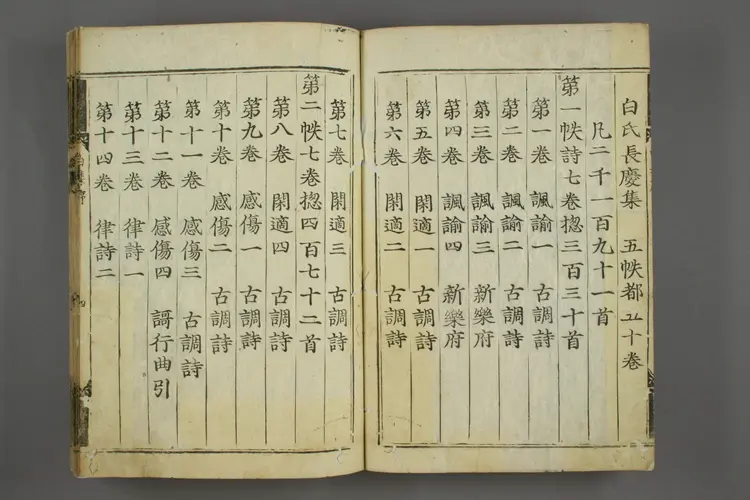 白氏長慶集 五帙都五十卷
凡二千一百九十一首
第一帙詩七卷揔三百三十首
第一卷 諷諭一 古調詩
第二卷 諷諭二 古調詩
第三卷 諷諭三 新樂府
第四卷 諷諭四 新樂府
第五卷 閑適一 古調詩
第六卷 閑適二 古調詩
第七卷 閑適三 古調詩
第二帙七卷揔四百七十二首
第八卷 閑適四 古調詩
第九卷 感傷一 古調詩
第十卷 感傷二 古調詩
第十一卷 感傷三 古調詩
第十二卷 感傷四 謌行曲引
第十三卷 律詩一
第十四卷 律詩二